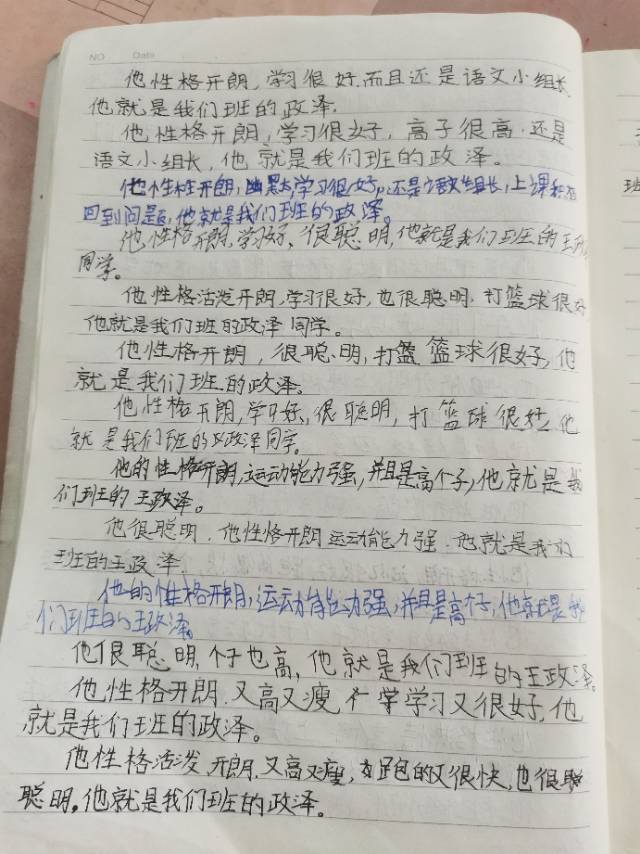 NO Date
他性格开朗,学习很好.而且还是语文小组长,
他就是我们班的政泽.
他性格开朗,学习很好,高子很高.还是
语文小组长,他就是我们班的政泽。
他性格开朗,幽默,学习很好,还是语文组长,上课积极
回到问题,他就是我们班的政泽。
他性格开朗,学习好、很聪明,他就是我们班的王
同学。
他性格活泼开朗,学习很好,也很聪明.打篮球很好
他就是我们班的政泽同学。
他性格开朗,很聪明,打篮篮球很好,他
就是我们班的政泽。
他性格开朗,学习好、很聪明,打篮球很好,他
就是我们班的政泽同学。
他的性格开朗,运动能力强,并且是高个子,他就是我
们班的王政泽。
他很聪明.他性格开朗运动能力强.他就是我们
班的王政泽.
他的性格开朗,运动能力强,并且是高个子,他就是我
们班的王政泽。
他很聪明,个子也高,他就是我们班的王政泽。
他性格开朗.又高又瘦个学习又很好,他
就是我们班的政泽。
他性格活泼开朗.又高又瘦,跑的又很快,也很
聪明。他就是我们班的政泽。
班